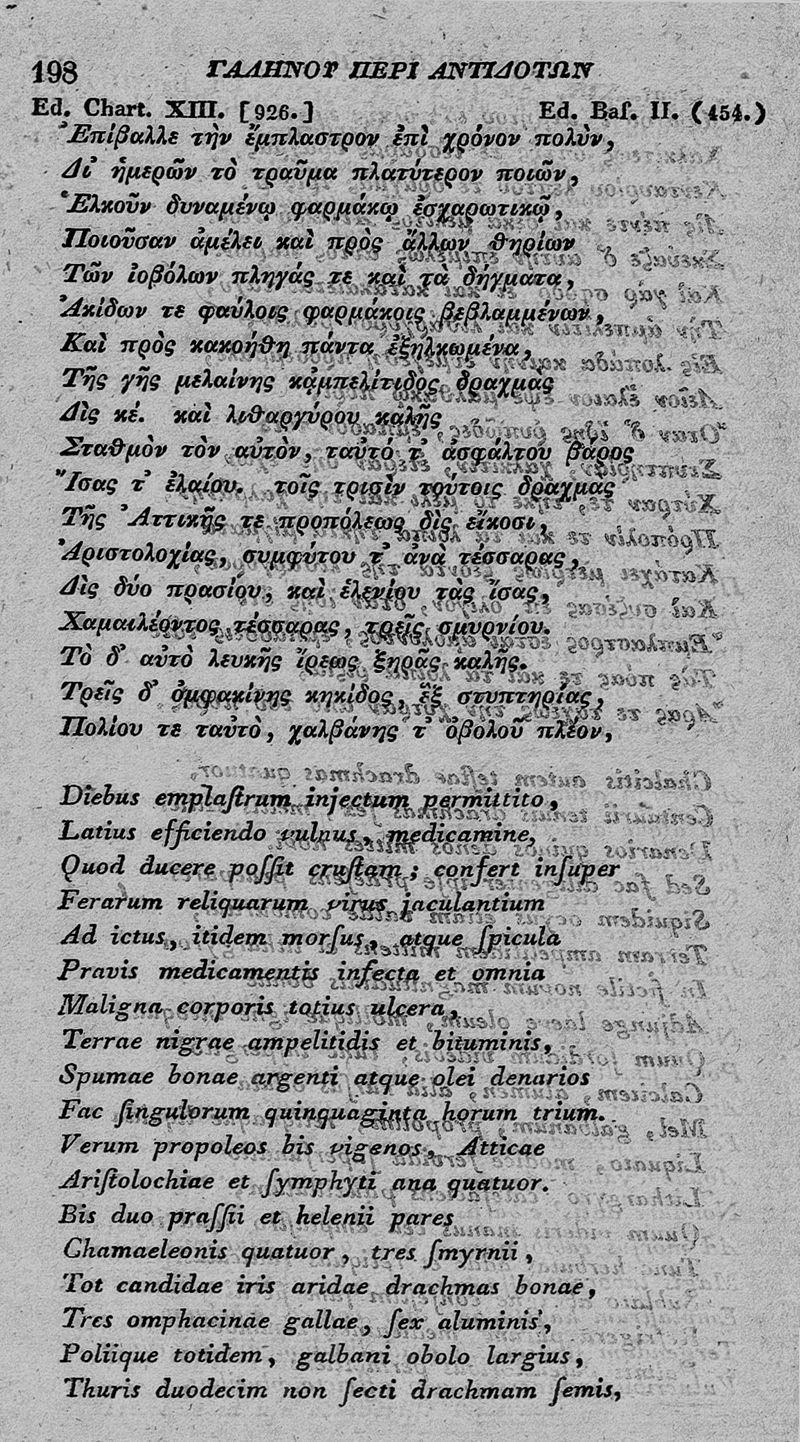 198 ΓΑΛΗΝΟΥ ΠΕΡΙ ΑΝΤΙΔΟΤΩΝ
Ed. Chart. XIII. [926.] Ed. Baſ. II. (454.)
Ἐπίβαλλε τὴν ἔμπλαστρον ἐπὶ χρόνον πολὺν,
Δι᾽ ἡμερῶν τὸ τραῦμα πλατύτερον ποιῶν,
Ἑλκοῦν δυναμένῳ φαρμάκῳ ἐσχαρωτικῷ,
Ποιοῦσαν ἀμέλει καὶ πρὸς ἄλλων θηρίων
Τῶν ἰοβόλων πληγάς τε καὶ τὰ δήγματα,
Ἀκίδων τε φαύλοις φαρμάκοις βεβλαμμένων,
Καὶ πρὸς κακοήθη πάντα ἐξηλκωμένα,
Τῆς γῆς μελαίνης κἀμπελίτιδος δραχμὰς
Δὶς κέ. καὶ λιθαργύρου καλῆς
Σταθμὸν τὸν αὐτὸν, ταὐτό τ᾽ ἀσφάλτου βάρος
Ἴσας τ᾽ ἐλαίου. τοῖς τρισὶν τούτοις δραχμὰς
Τῆς Ἀττικῆς τε προπόλεως δὶς εἴκοσι,
Ἀριστολοχίας, συμφύτου τ᾽ ἀνὰ τέσσαρας,
Δὶς δύο πρασίου, καὶ ἑλενίου τὰς ἴσας,
Χαμαιλέοντος τέσσαρας, τρεῖς σμυρνίου.
Τὸ δ᾽ αὐτὸ λευκῆς ἴρεως ξηρᾶς καλῆς.
Τρεῖς δ᾽ ὀμφακίνης κηκίδος, ἓξ στυπτηρίας,
Πολίου τε ταὐτὸ, χαλβάνης τ᾽ ὀβολοῦ πλέον,
Diebus emplaſtrum injectum permittito,
Latius efficiendo vulnus, medicamine,
Quod ducere poſſit cruſtam; confert inſuper
Ferarum reliquarum virus jaculantium
Ad ictus, itidem morſus, atque ſpicula
Pravis medicamentis infecta et omnia
Maligna corporis totius ulcera,
Terrae nigrae ampelitidis et bituminis,
Spumae bonae argenti atque olei denarios
Fac ſingulorum quinquaginta horum trium.
Verum propoleos bis vigenos, Atticae
Ariſtolochiae et ſymphyti ana quatuor.
Bis duo praſſii et helenii pares
Chamaeleonis quatuor, tres ſmyrnii,
Tot candidae iris aridae drachmas bonae,
Tres omphacinae gallae, ſex aluminis,
Poliique totidem, galbani obolo largius,
Thuris duodecim non ſecti drachmam ſemis,